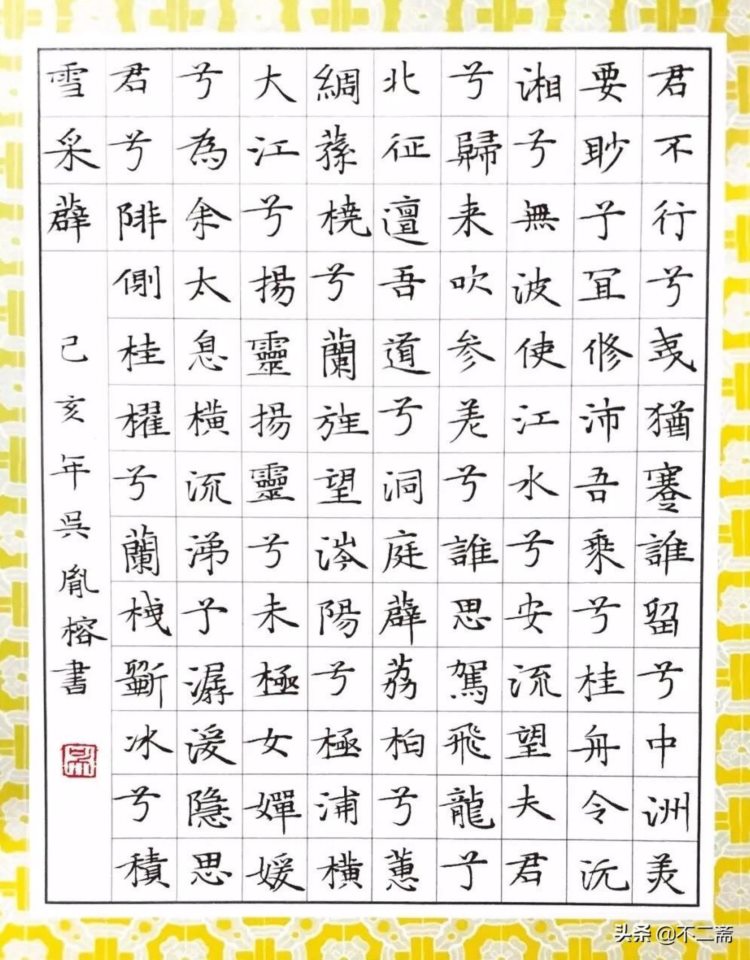 君不行兮夷猶蹇誰留兮中洲美
要眇兮宜修沛吾乘兮桂舟令沅
湘兮無波使江水兮安流望夫君
兮歸来吹参差兮誰思駕飛龍兮
北征邅吾道兮洞庭薜荔柏兮蕙
綢蓀橈兮蘭旌望涔陽兮極浦橫
大江兮揚靈揚靈兮未極女嬋媛
兮為余太息橫流涕兮潺湲隱思
君兮陫側桂櫂兮蘭枻斲冰兮積
雪采薜
己亥年吳胤榕書
头条 @不二斋